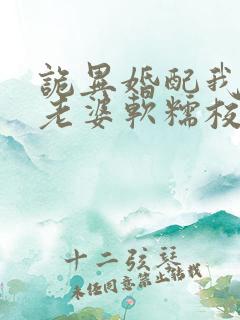 詭異婚配我
老婆軟糯极
十二弦琴
未经同意禁止转载